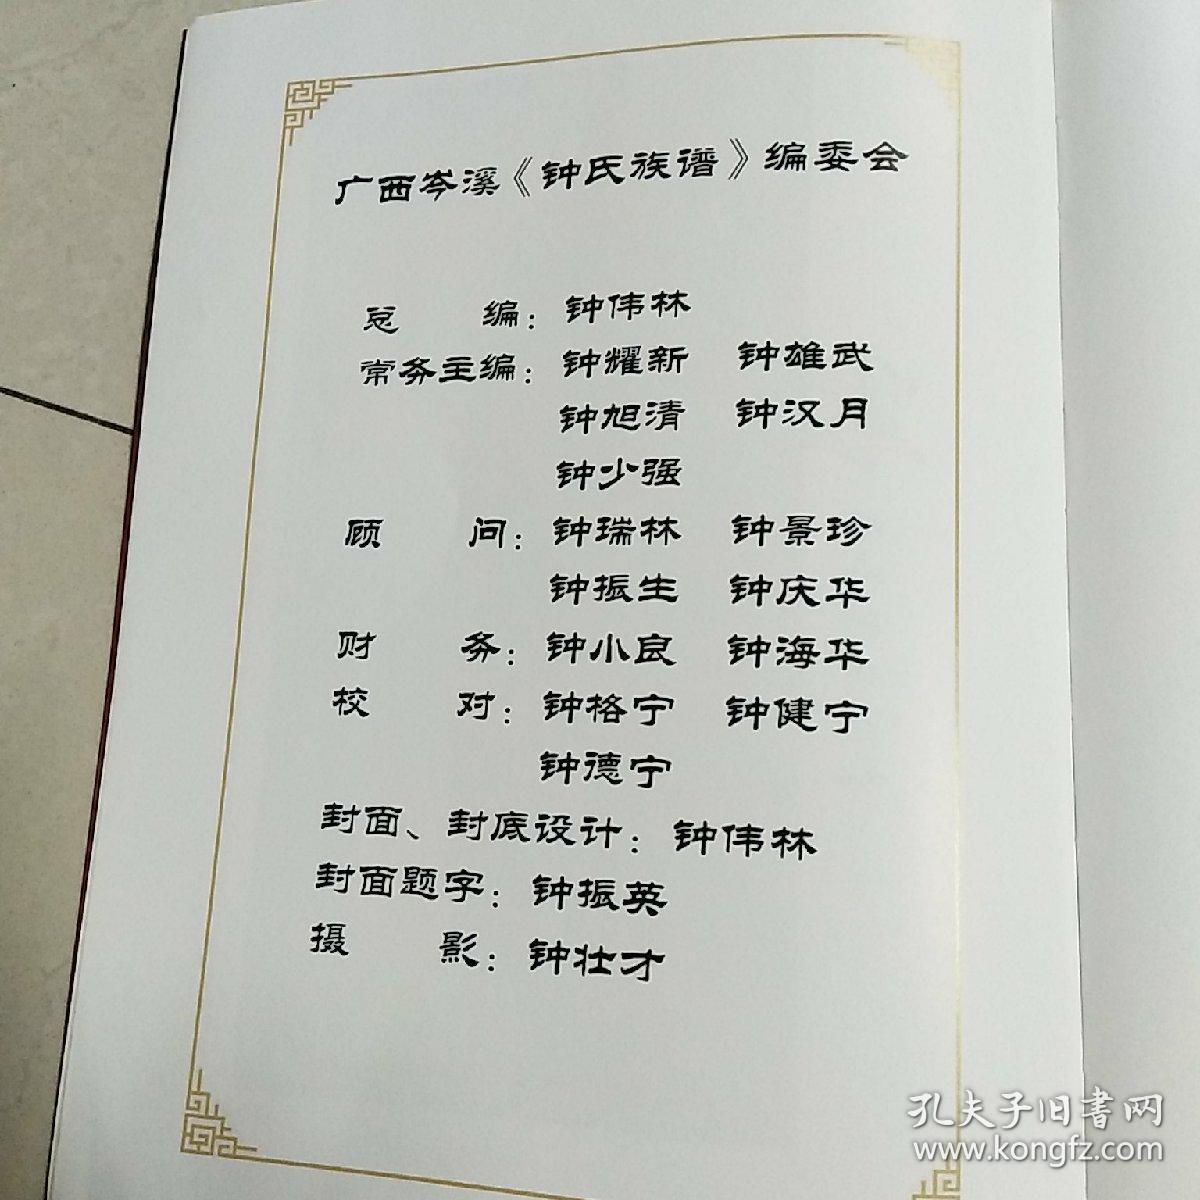 广西岑溪《钟氏族谱》编委会
总 编：钟伟林
常务主编：钟耀新 钟雄武
钟旭清 钟汉月
钟少强
顾 问：钟瑞林 钟景珍
钟振生 钟庆华
财 务：钟小良 钟海华
校 对：钟格宁 钟健宁
钟德宁
封面、封底设计：钟伟林
封面题字：钟振英
摄 影：钟壮才
孔夫子旧书网
www.kongfz.com